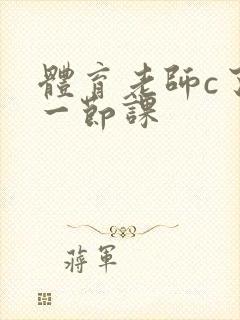 體育老師c了
一節課
蔣軍